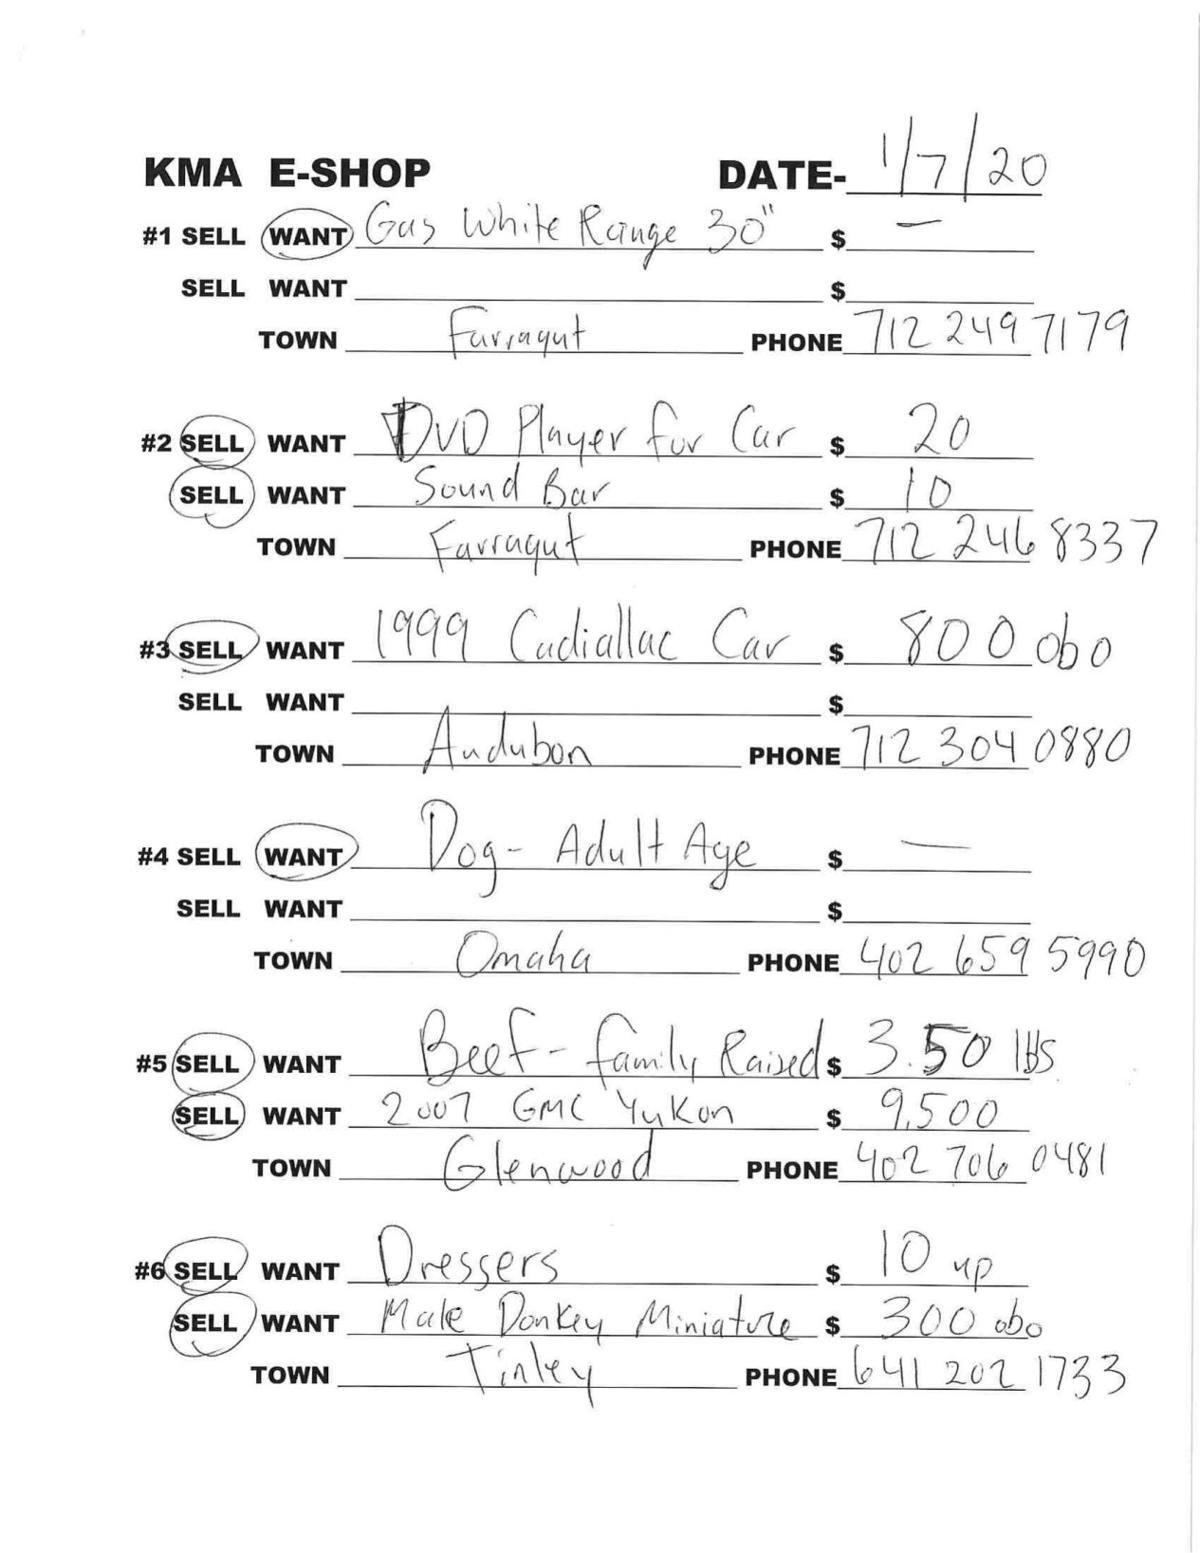 KMA E-SHOP DATE- 1/7/20
#1 SELL WANT Gas White Range 30" $ —
SELL WANT $
TOWN Farragut PHONE 712 249 7179
#2 SELL WANT DVD Player for Car $ 20
SELL WANT Sound Bar $ 10
TOWN Farragut PHONE 712 246 8337
#3 SELL WANT 1999 Cadiallac Car $ 800 obo
SELL WANT $
TOWN Audubon PHONE 712 304 0880
#4 SELL WANT Dog - Adult Age $ —
SELL WANT $
TOWN Omaha PHONE 402 659 5990
#5 SELL WANT Beef - family Raised $ 3.50 lbs
SELL WANT 2007 GMC Yukon $ 9,500
TOWN Glenwood PHONE 402 706 0481
#6 SELL WANT Dressers $ 10 up
SELL WANT Male Donkey Miniature $ 300 obo
TOWN Tinley PHONE 641 202 1733